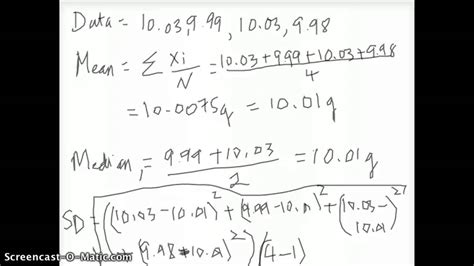 Data = 10.03, 9.99, 10.03, 9.98
Mean = ∑ xi/N = 10.03 + 9.99 + 10.03 + 9.98 / 4
= 10.0075g = 10.01g
Median, = 9.99 + 10.03 / 2 = 10.01g
SD = √((10.03 - 10.01)² + (9.99 - 10.01)² + (10.03 - 10.01)²
+ (9.98 - 10.01)²) (4-1)
Screencast-O-Matic.com